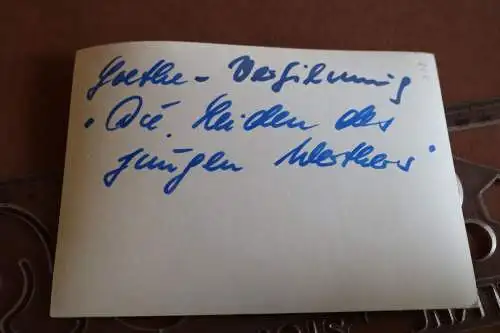 Goethe - Verfilmung
"Die Leiden des
jungen Werthers"